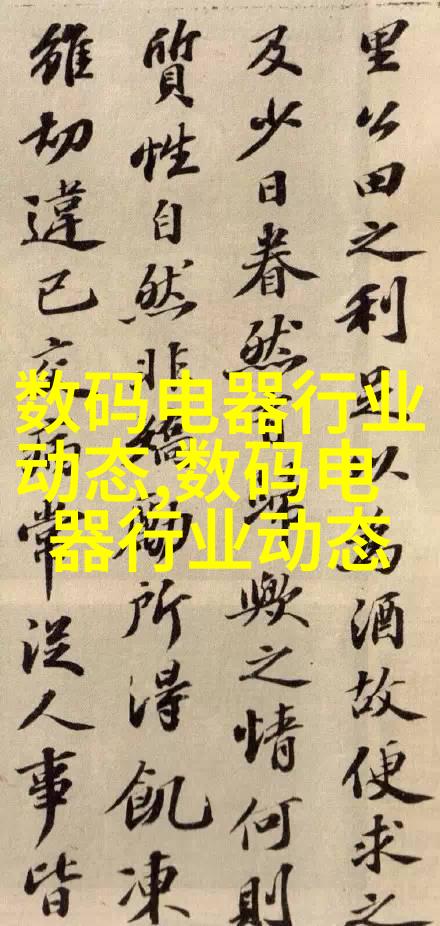 里公田之利足以為酒故便求之
及少日眷然有歸歟之情何則
質性自然非矯勵所得飢凍
雖切違己交病常從人事皆
数码电器行业
动态,数码电
器行业动态